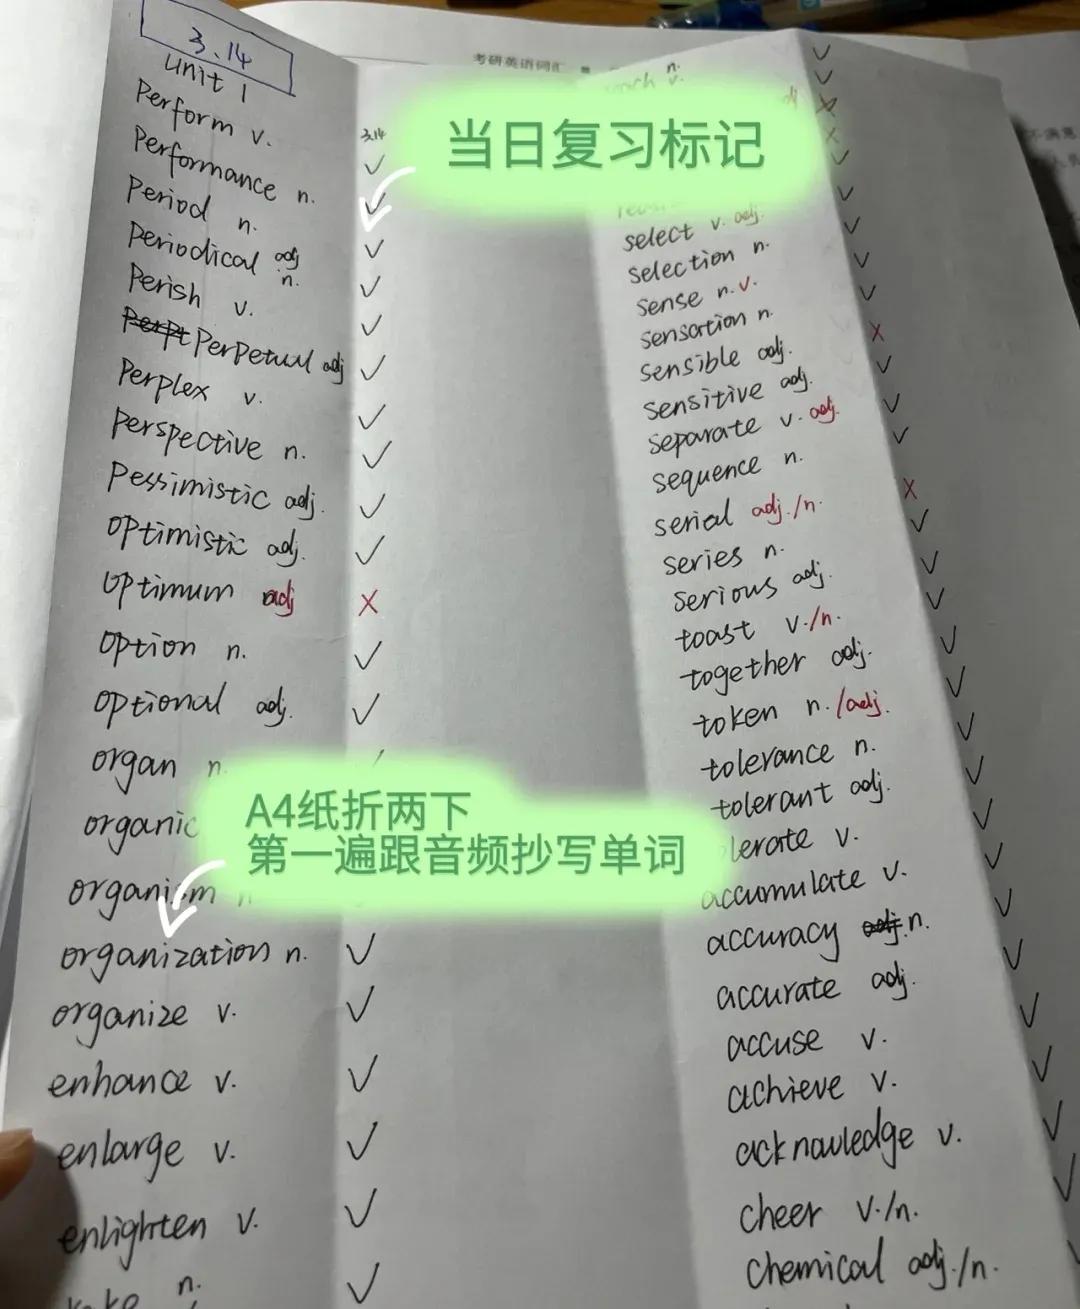 3.14
unit 1
Perform v.
Performance n.
Period n.
Periodical adj n.
Perish v.
Perpetual adj
Perplex v.
Perspective n.
Pessimistic adj.
optimistic adj.
optimum adj
option n.
optional adj.
organ n.
organic
organism n
organization n.
organize v.
enhance v.
enlarge v.
enlighten v.
n.
3.14
考研英语词汇
当日复习标记
A4纸折两下
第一遍跟音频抄写单词
n.
v.
select v. adj.
selection n.
sense n.v.
sensation n.
sensible adj.
sensitive adj.
separate v. adj.
sequence n.
serial adj./n.
series n.
serious adj.
toast v./n.
together adj.
token n./adj.
tolerance n.
tolerant adj.
lerate v.
accumulate v.
accuracy adj. n.
accurate adj.
accuse v.
achieve v.
acknowledge v.
cheer v./n.
chemical adj./n.